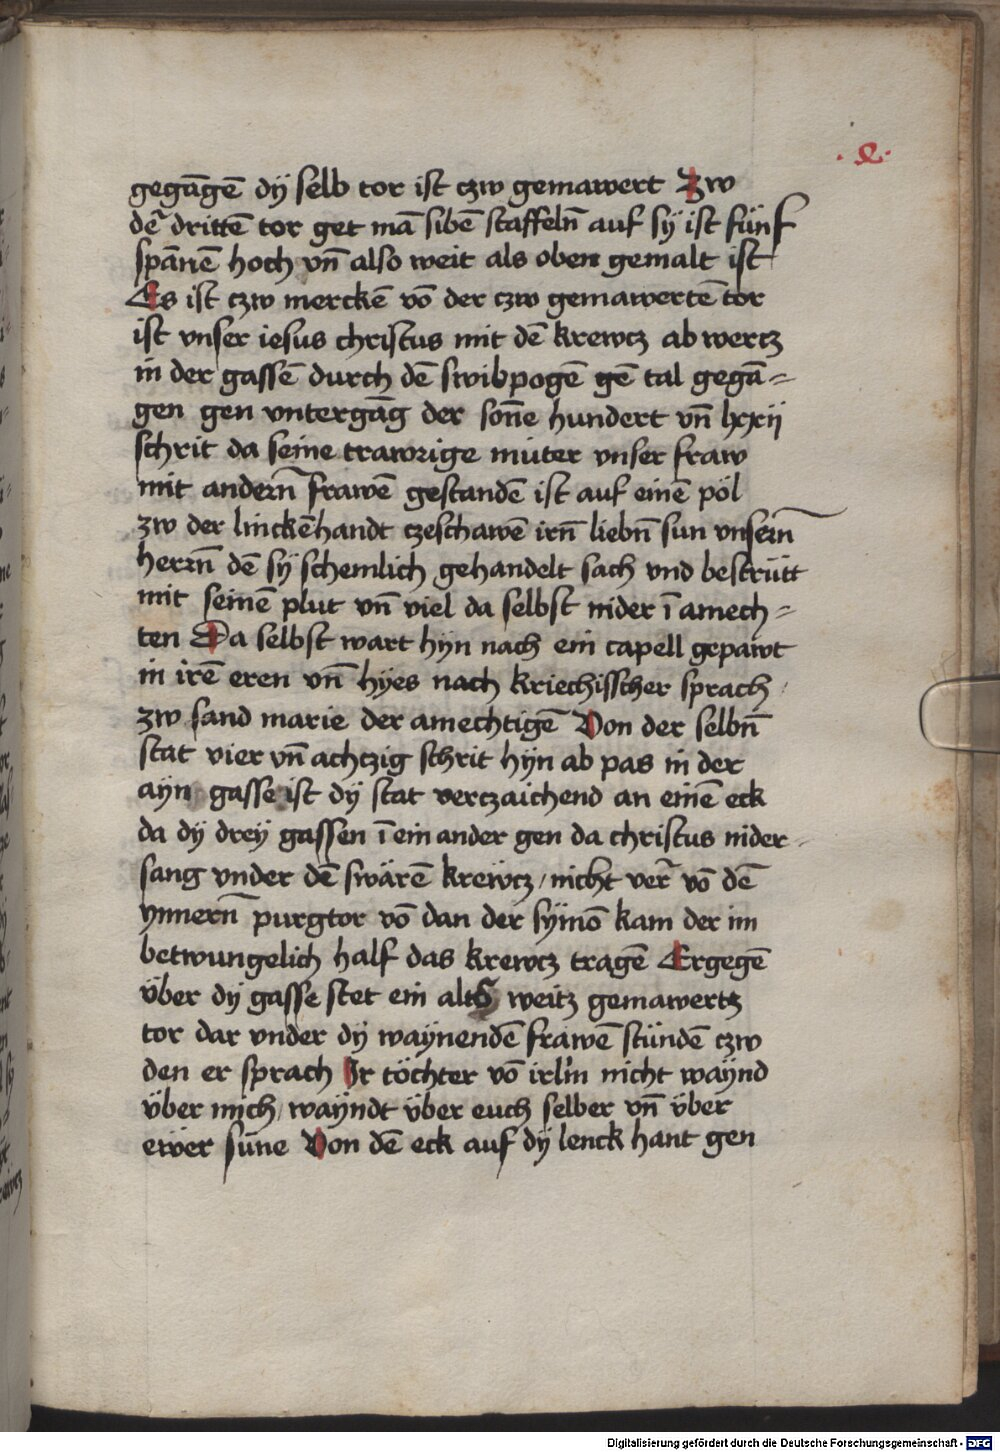 .e.
gegāgē dÿ selb tor ist czw gemawert Zw
dē drittē tor get mā sibē staffelñ auf sÿ ist fünf
spānē hoch vñ also weit als oben gemalt ist
Es ist czw merckē vō der czw gemawertē tor
ist vnser iesus christus mit dē krewcz ab wercz
in der gassē durch dē swibpogē gē tal gegā=
gen gen vntergāg der soñe hundert vñ lxxij
schrit da seine trawrige muter vnser fraw
mit anderñ frawē gestandē ist auf einē pöl
zw der linckēhandt czeschawē irñ liebñ sun vnserñ
herrñ dē sÿ schemlich gehandelt sach vnd bestrütt
mit seinē plut vñ viel da selbst nider ī amech=
ten Da selbst wart hÿn nach ein capell gepawt
in irē eren vñ hÿes nach kriechisscher sprach
zw sand marie der amechtigē Von der selbñ
stat vier vñ achczig schrit hÿn ab pas in der
aÿn gasse ist dÿ stat verczaichend an einē eck
da dÿ dreÿ gassen ī ein ander gen da christus nider
sang vnder dē swärē krewcz / nicht ver vō dē
ynnerñ purgtor vō dan der sÿmō kam der im
betwungelich half das krewcz tragē Ergegē
über dÿ gasse stet ein alts weitz gemawertz
tor dar vnder dÿ waÿnendē frawē stündē czw
den er sprach Ir töchter vō irlm̄ nicht waÿnd
über mich / waÿndt über euch selber vñ über
ewer süne Von dē eck auf dÿ lenck hant gen
Digitalisierung gefördert durch die Deutsche Forschungsgemeinschaft - DFG